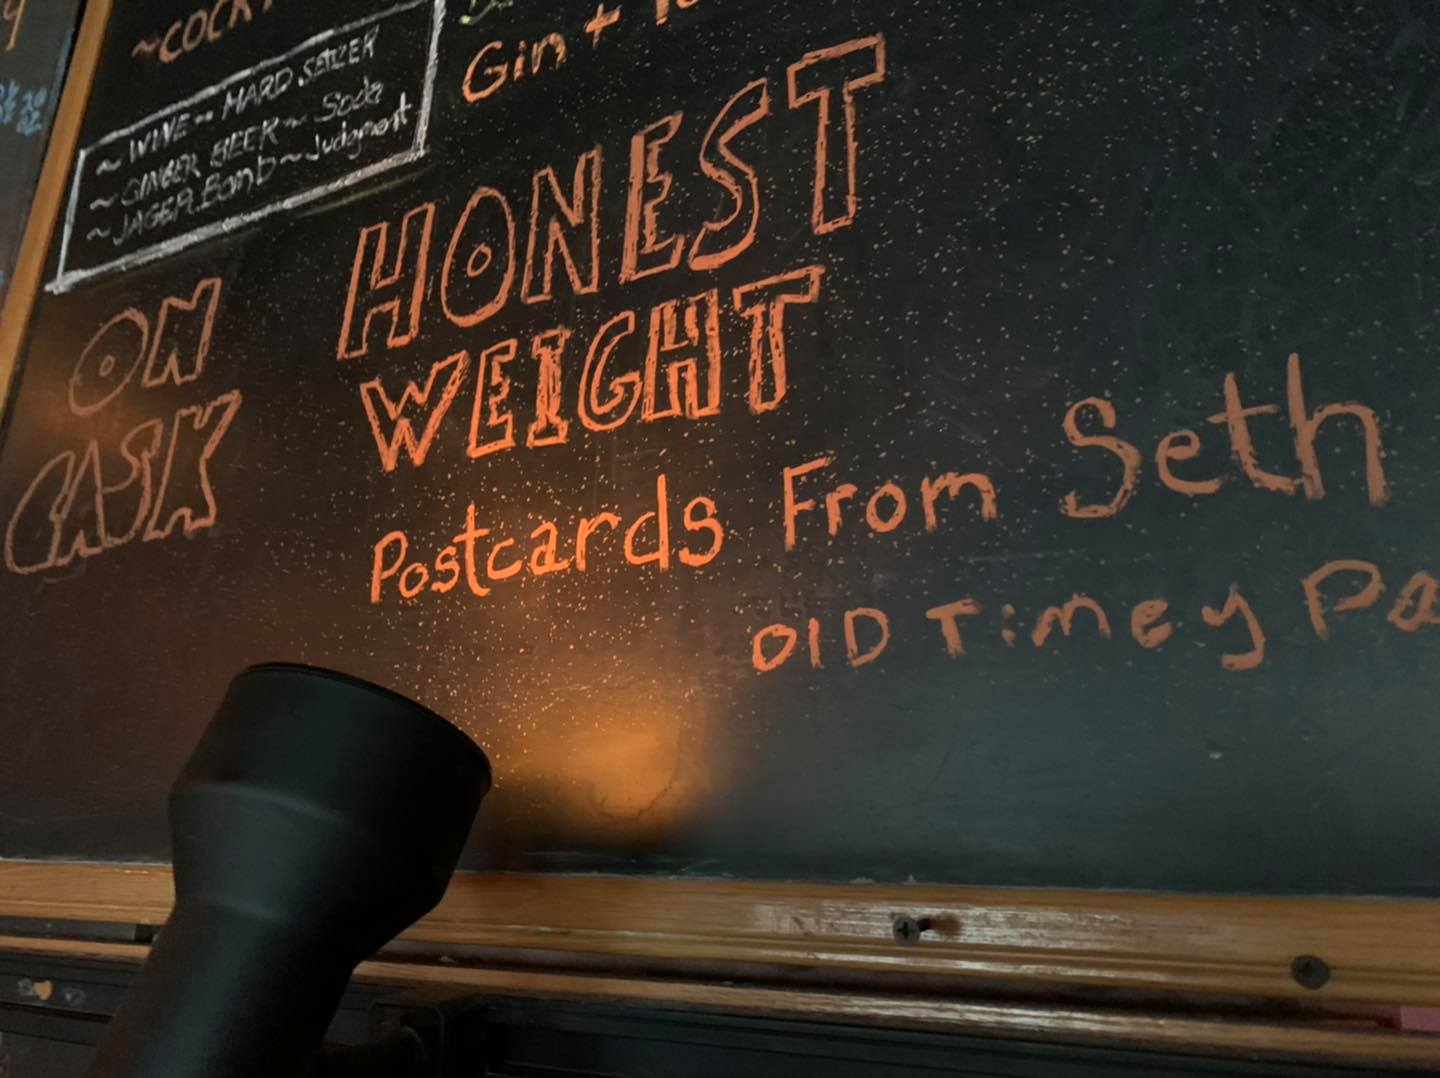 ~COCK
~WINE~HARD SELZER
~GINGER BEER~Soda
~JAGER.Bomb~Judgment
Gin +
ON
CASK
HONEST
WEIGHT
Postcards From Seth
OlD Timey Pa